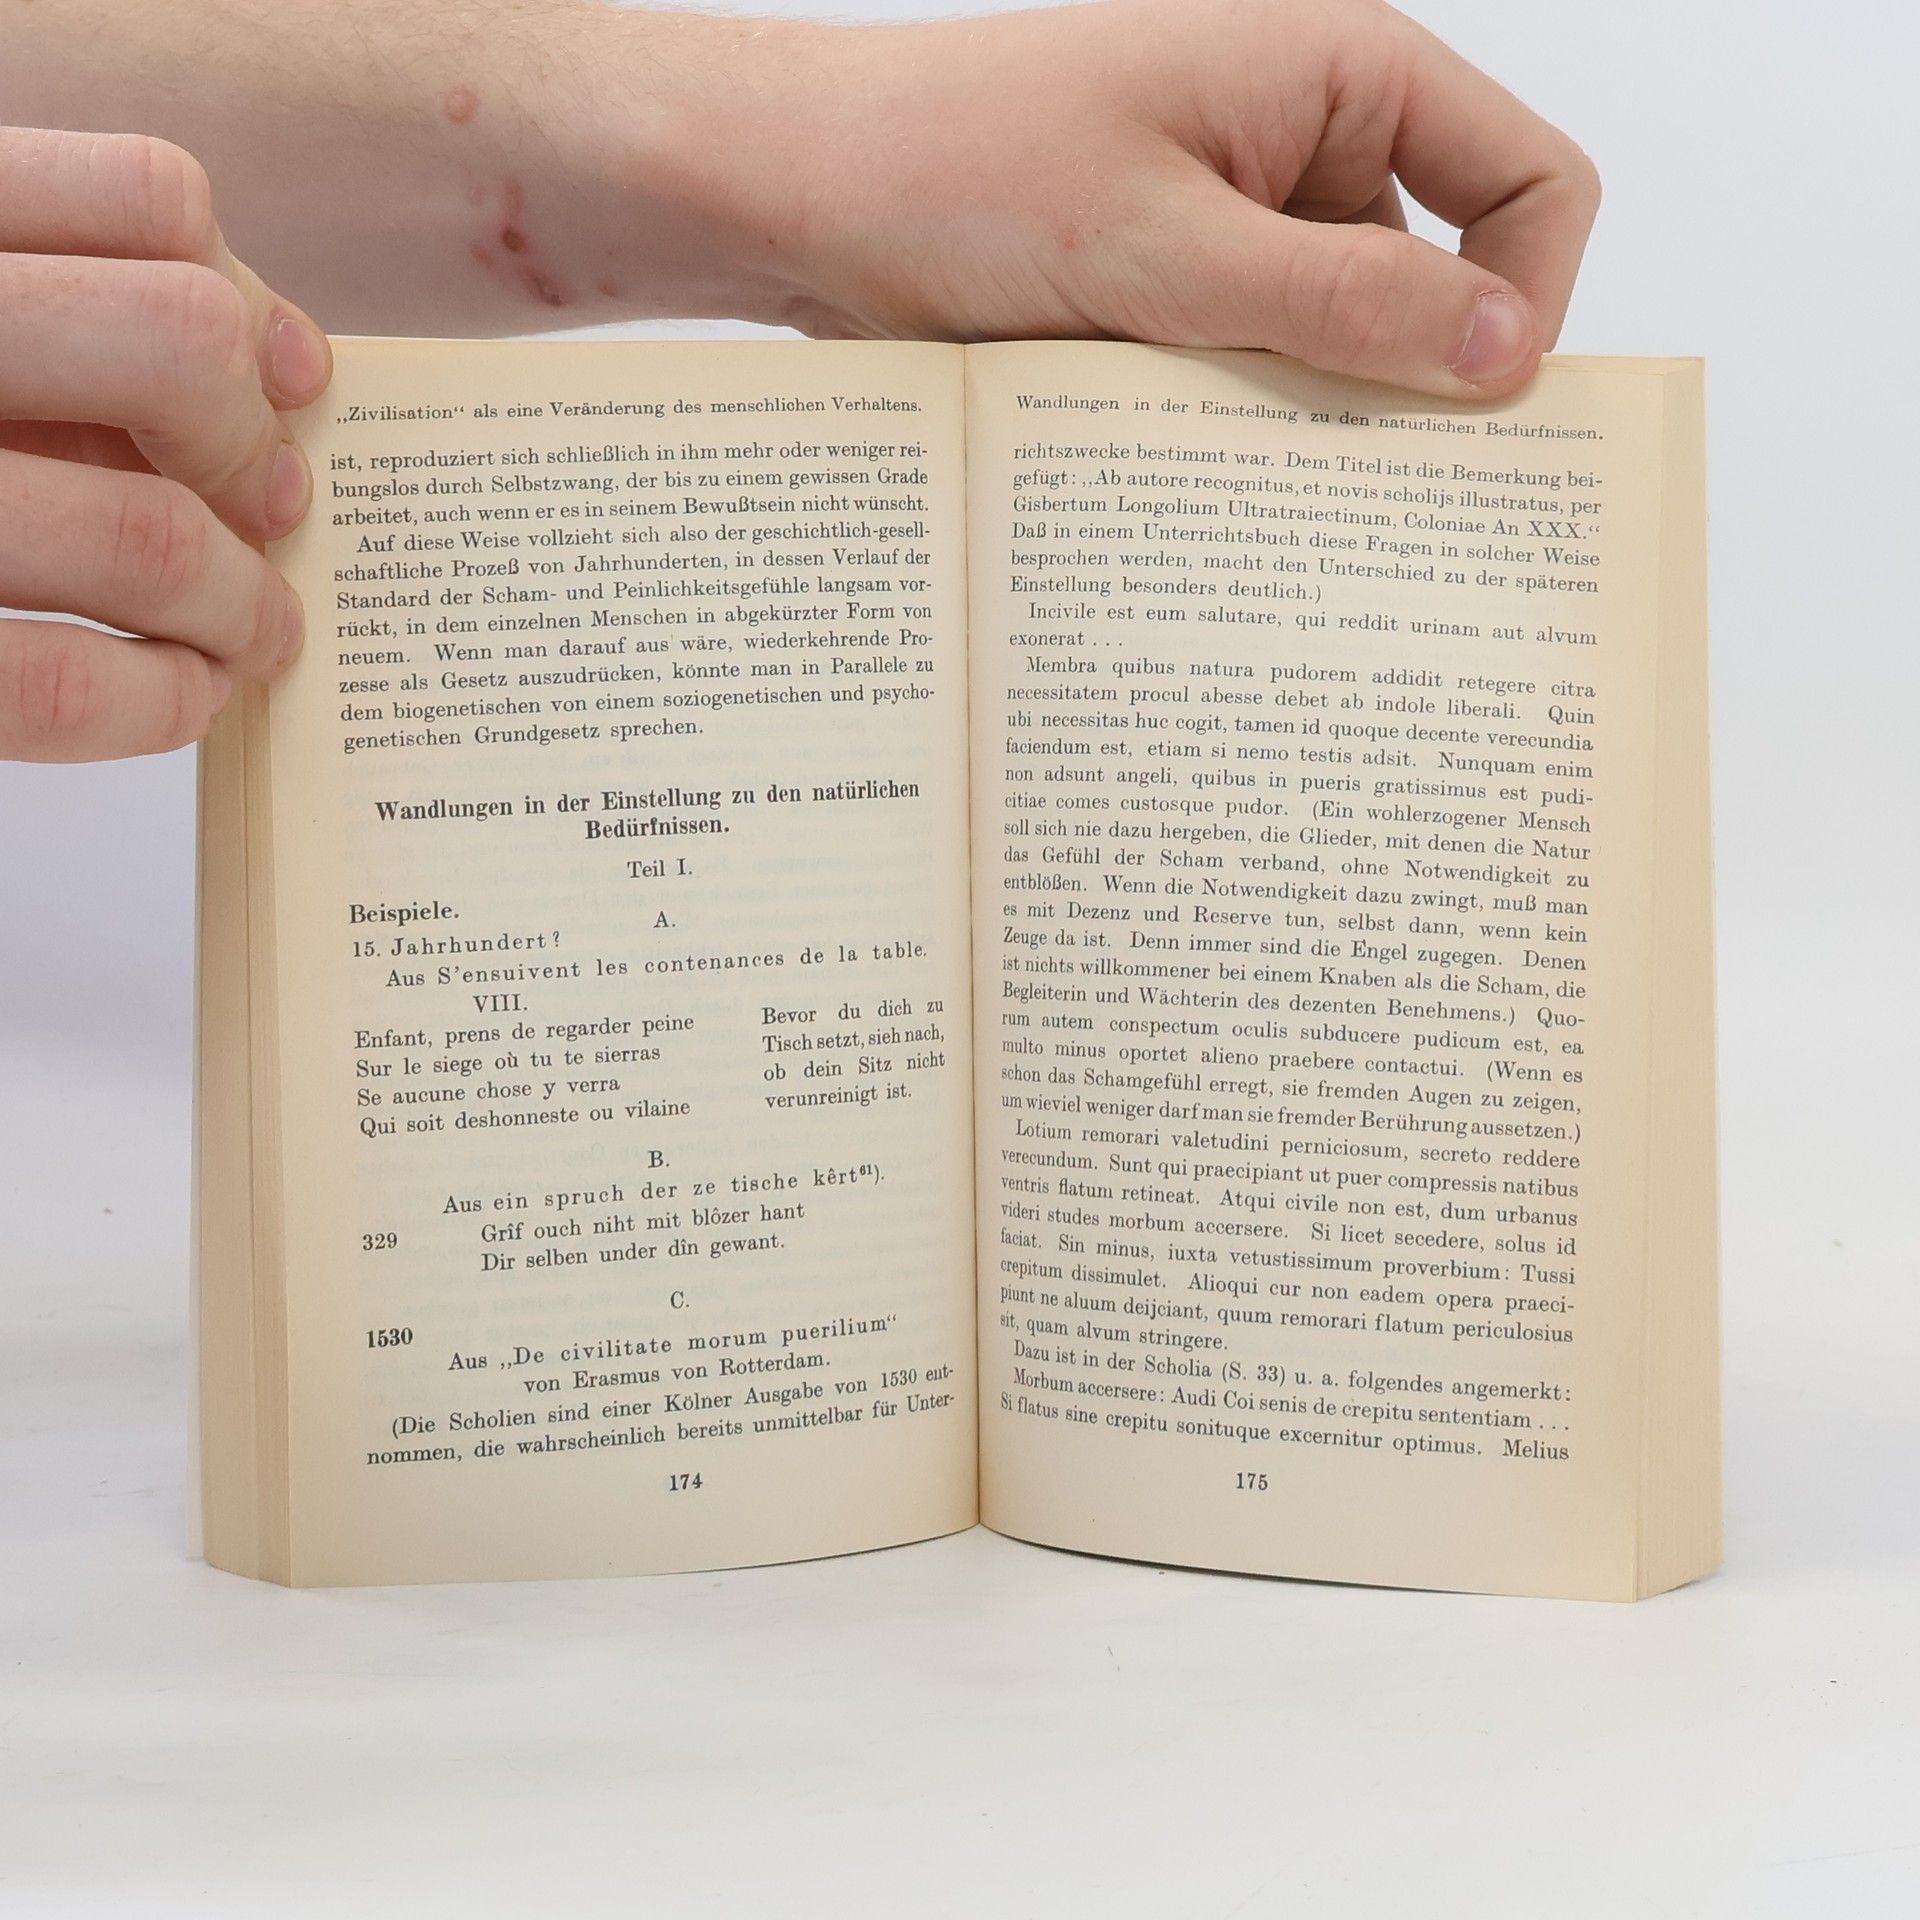 „Zivilisation“ als eine Veränderung des menschlichen Verhaltens.
ist, reproduziert sich schließlich in ihm mehr oder weniger rei-
bungslos durch Selbstzwang, der bis zu einem gewissen Grade
arbeitet, auch wenn er es in seinem Bewußtsein nicht wünscht.
Auf diese Weise vollzieht sich also der geschichtlich-gesell-
schaftliche Prozeß von Jahrhunderten, in dessen Verlauf der
Standard der Scham- und Peinlichkeitsgefühle langsam vor-
rückt, in dem einzelnen Menschen in abgekürzter Form von
neuem. Wenn man darauf aus wäre, wiederkehrende Pro-
zesse als Gesetz auszudrücken, könnte man in Parallele zu
dem biogenetischen von einem soziogenetischen und psycho-
genetischen Grundgesetz sprechen.
Wandlungen in der Einstellung zu den natürlichen
Bedürfnissen.
Teil I.
Beispiele.
A.
15. Jahrhundert?
Aus S’ensuivent les contenances de la table.
VIII.
Enfant, prens de regarder peine
Sur le siege où tu te sierras
Se aucune chose y verra
Qui soit deshonneste ou vilaine
Bevor du dich zu
Tisch setzt, sieh nach,
ob dein Sitz nicht
verunreinigt ist.
B.
Aus ein spruch der ze tische kêrt⁶¹).
329 Grîf ouch niht mit blôzer hant
Dir selben under dîn gewant.
C.
1530
Aus „De civilitate morum puerilium“
von Erasmus von Rotterdam.
(Die Scholien sind einer Kölner Ausgabe von 1530 ent-
nommen, die wahrscheinlich bereits unmittelbar für Unter-
174
Wandlungen in der Einstellung zu den natürlichen Bedürfnissen.
richtszwecke bestimmt war. Dem Titel ist die Bemerkung bei-
gefügt: „Ab autore recognitus, et novis scholijs illustratus, per
Gisbertum Longolium Ultratraiectinum, Coloniae An XXX.“
Daß in einem Unterrichtsbuch diese Fragen in solcher Weise
besprochen werden, macht den Unterschied zu der späteren
Einstellung besonders deutlich.)
Incivile est eum salutare, qui reddit urinam aut alvum
exonerat . . .
Membra quibus natura pudorem addidit retegere citra
necessitatem procul abesse debet ab indole liberali. Quin
ubi necessitas huc cogit, tamen id quoque decente verecundia
faciendum est, etiam si nemo testis adsit. Nunquam enim
non adsunt angeli, quibus in pueris gratissimus est pudi-
citiae comes custosque pudor. (Ein wohlerzogener Mensch
soll sich nie dazu hergeben, die Glieder, mit denen die Natur
das Gefühl der Scham verband, ohne Notwendigkeit zu
entblößen. Wenn die Notwendigkeit dazu zwingt, muß man
es mit Dezenz und Reserve tun, selbst dann, wenn kein
Zeuge da ist. Denn immer sind die Engel zugegen. Denen
ist nichts willkommener bei einem Knaben als die Scham, die
Begleiterin und Wächterin des dezenten Benehmens.) Quo-
rum autem conspectum oculis subducere pudicum est, ea
multo minus oportet alieno praebere contactui. (Wenn es
schon das Schamgefühl erregt, sie fremden Augen zu zeigen,
um wieviel weniger darf man sie fremder Berührung aussetzen.)
Lotium remorari valetudini perniciosum, secreto reddere
verecundum. Sunt qui praecipiant ut puer compressis natibus
ventris flatum retineat. Atqui civile non est, dum urbanus
videri studes morbum accersere. Si licet secedere, solus id
faciat. Sin minus, iuxta vetustissimum proverbium: Tussi
crepitum dissimulet. Alioqui cur non eadem opera praeci-
piunt ne aluum deijciant, quum remorari flatum periculosius
sit, quam alvum stringere.
Dazu ist in der Scholia (S. 33) u. a. folgendes angemerkt:
Morbum accersere: Audi Coi senis de crepitu sententiam . . .
Si flatus sine crepitu sonituque excernitur optimus. Melius
175